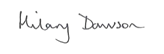 Hilary Dawson